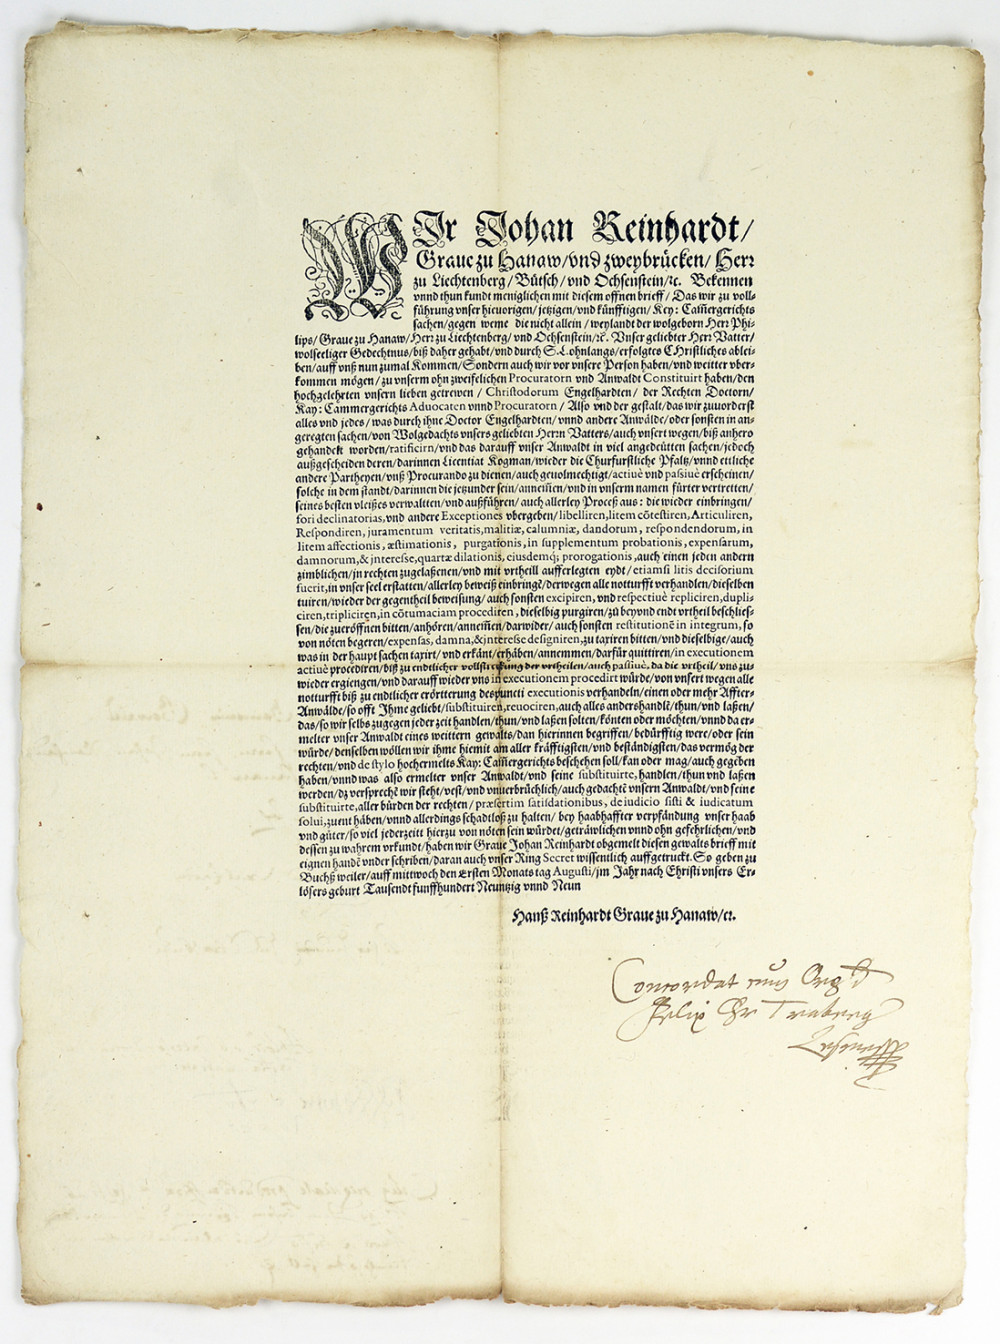 WIr Johan Reinhardt/
Graue zu Hanaw/vnd zweybrücken/ Herr
zu Liechtenberg/ Bütsch/ vnd Ochsenstein/ꝛc. Bekennen
vnnd thun kundt meniglichen mit diesem offnen brieff/ Das wir zu voll⸗
führung vnser hieuorigen/jetzigen/vnd künfftigen/ Key: Cam̃ergerichts
sachen/gegen weme die nicht allein / weylandt der wolgeborn Herr Phi⸗
lips/ Graue zu Hanaw/Herr zu Liechtenberg/ vnd Ochsenstein/ꝛc. Vnser geliebter Herr Vatter/
wolseeliger Gedechtnus/biß daher gehabt/vnd durch S.L ohnlangs/erfolgtes CHristliches ablei⸗
ben/auff vnß nun zumal Kommen/Sondern auch wir vor vnsere Person haben/vnd weitter vber⸗
kommen mögen/zu vnserm ohn zweifelichen Procuratorn vnd Anwaldt Constituirt haben/den
hochgelehrten vnsern lieben getrewen / Christodorum Engelhardten/ der Rechten Doctorn/
Kay: Cammergerichts Aduocaten vnnd Procuratorn/ Also vnd der gestalt/das wir zuuorderst
alles vnd jedes/was durch ihne Doctor Engelhardten/vnnd andere Anwälde/oder sonsten in an⸗
geregten sachen/von Wolgedachts vnsers geliebten Herrn Vatters/auch vnsert wegen/biß anhero
gehandelt worden/ratificirn/vnd das darauff vnser Anwaldt in viel angedeütten sachen/jedoch
außgescheiden deren/darinnen Licentiat Kogman/wieder die Churfurstliche Pfaltz/vnnd ettliche
andere Partheyen/vnß Procurando zu dienen/auch geuolmechtigt/actiuè vnd passiuè erscheinen/
solche in dem standt/darinnen die jetzunder sein/annem̃en/vnd in vnserm namen fürter vertretten/
seines besten vleißes verwalten/vnd außführen/ auch allerley Proceß aus: die wieder einbringen/
fori declinatorias,vnd andere Exceptiones vbergeben/libelliren,litem cõtestiren,Articuliren,
Respondiren, juramentum veritatis,malitiæ,calumniæ, dandorum, respondendorum, in
litem affectionis, æstimationis, purgationis,in supplementum probationis, expensarum,
damnorum,& jnteresse,quartæ dilationis, eiusdemq; prorogationis,auch einen jeden andern
zimblichen/jn rechten zugelaßenen/vnd mit vrtheill aufferlegten eydt/etiamsi litis decisorium
fuerit,in vnser seel erstatten/allerley beweiß einbringẽ/derwegen alle notturfft verhandlen/dieselben
tuiren/wieder der gegentheil beweisung/ auch sonsten excipiren, vnd respectiuè repliciren,dupli⸗
ciren,tripliciren,in cõtumaciam procediren , dieselbig purgiren/zu beyvnd endt vrtheil beschlies⸗
sen/die zueröffnen bitten/anhören/annem̃en/darwider/auch sonsten restitutionẽ in integrum, so
von nöten begeren/expensas, damna,&jnteresse designiren,zu taxiren bitten/vnd dieselbige/auch
was in der haupt sachen taxirt/vnd erkant/erhaben/annemmen/darfür quittiren/in executionem
actiuè procediren/biß zu endtlicher vollstreckung der vrtheilen/auch passiuè, da die vrtheil/vns zu⸗
wieder ergiengen/vnd darauff wieder vns in executionem procedirt würde/von vnsert wegen alle
notturfft biß zu endtlicher erörtterung des puncti executionis verhandeln/einen oder mehr Affter⸗
Anwäldt/so offt Ihme geliebt/substituiren,reuociren,auch alles anders handlẽ/thun/vnd laßen/
das/so wir selbs zugegen jeder zeit handlen/thun/vnd laßen solten/könten oder möchten/vnnd da er⸗
melter vnser Anwaldt eines weittern gewalts/dan hierinnen begriffen/bedürfftig were/oder sein
würde/denselben wöllen wir ihme hiemit am aller kräfftigsten/vnd beständigsten/das vermög der
rechten/vnd de stylo hochermelts Kay: Cam̃ergerichts beschehen soll/kan oder mag/auch gegẽben
haben/vnnd was also ermelter vnser Anwaldt/vnd seine substituirte,handlen/thun vnd laßen
werden/dz versprechẽ wir steht/vest/vnd vnuerbrüchlich/auch gedachtẽ vnsern Anwaldt/vnd seine
substituirte,aller bürden der rechten/ præsertim satisdationibus, de iudicio sisti & iudicatum
solui,zuent häben/vnnd allerdings schadtloß zu halten/ bey haabhaffter verpfändung vnser haab
vnd güter/so viel jederzeit hierzu von nöten sein würdet/geträwlichen vnnd ohn gefehrlichen/vnd
dessen zu wahrem vrkundt/haben wir Graue Johan Reinhardt obgemelt diesen gewalts brieff mit
eignen handẽ vnder schriben/daran auch vnser Ring Secret wissentlich auffgetruckt. So geben zu
Buchß weiler/auff mittwoch den Ersten Monats tag Augusti/jm Jahr nach Christi vnsers Er⸗
lösers geburt Tausendt funffhundert Neuntzig vnnd Neun
Hanß Reinhardt Graue zu Hanaw/ꝛc.
Concordat cum Orig
Felix